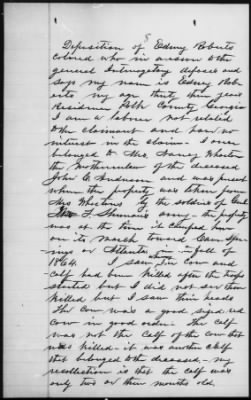 8
Deposition of Edny Roberts
colored who in answer to the
general Interrogatory deposes and
says my name is Edny Rob
erts my age thirty three years
Residence Polk County Georgia
I am a laborer not related
to the claimant and have no
interest in the claim - I once
belonged to Mrs. Nancy Whorton
the Motherinlaw of the deceased
John C. Anderson and was present
when the property was taken from
Mrs Whortons by the soldiers of Genl
Shermans army - the property
was at the time it camped here
on its march toward Cave Spr
ings or Atlanta in fall of
1864. I saw the cow and
calf had been killed after the troops
started but I did not see them
killed but I saw their heads
The cow was a good sized red
cow in good order. The calf
was not the calf of the cow that
was killed - it was another calf
that belonged to the deceased - my
recollection is that the calf was
only two or three months old.